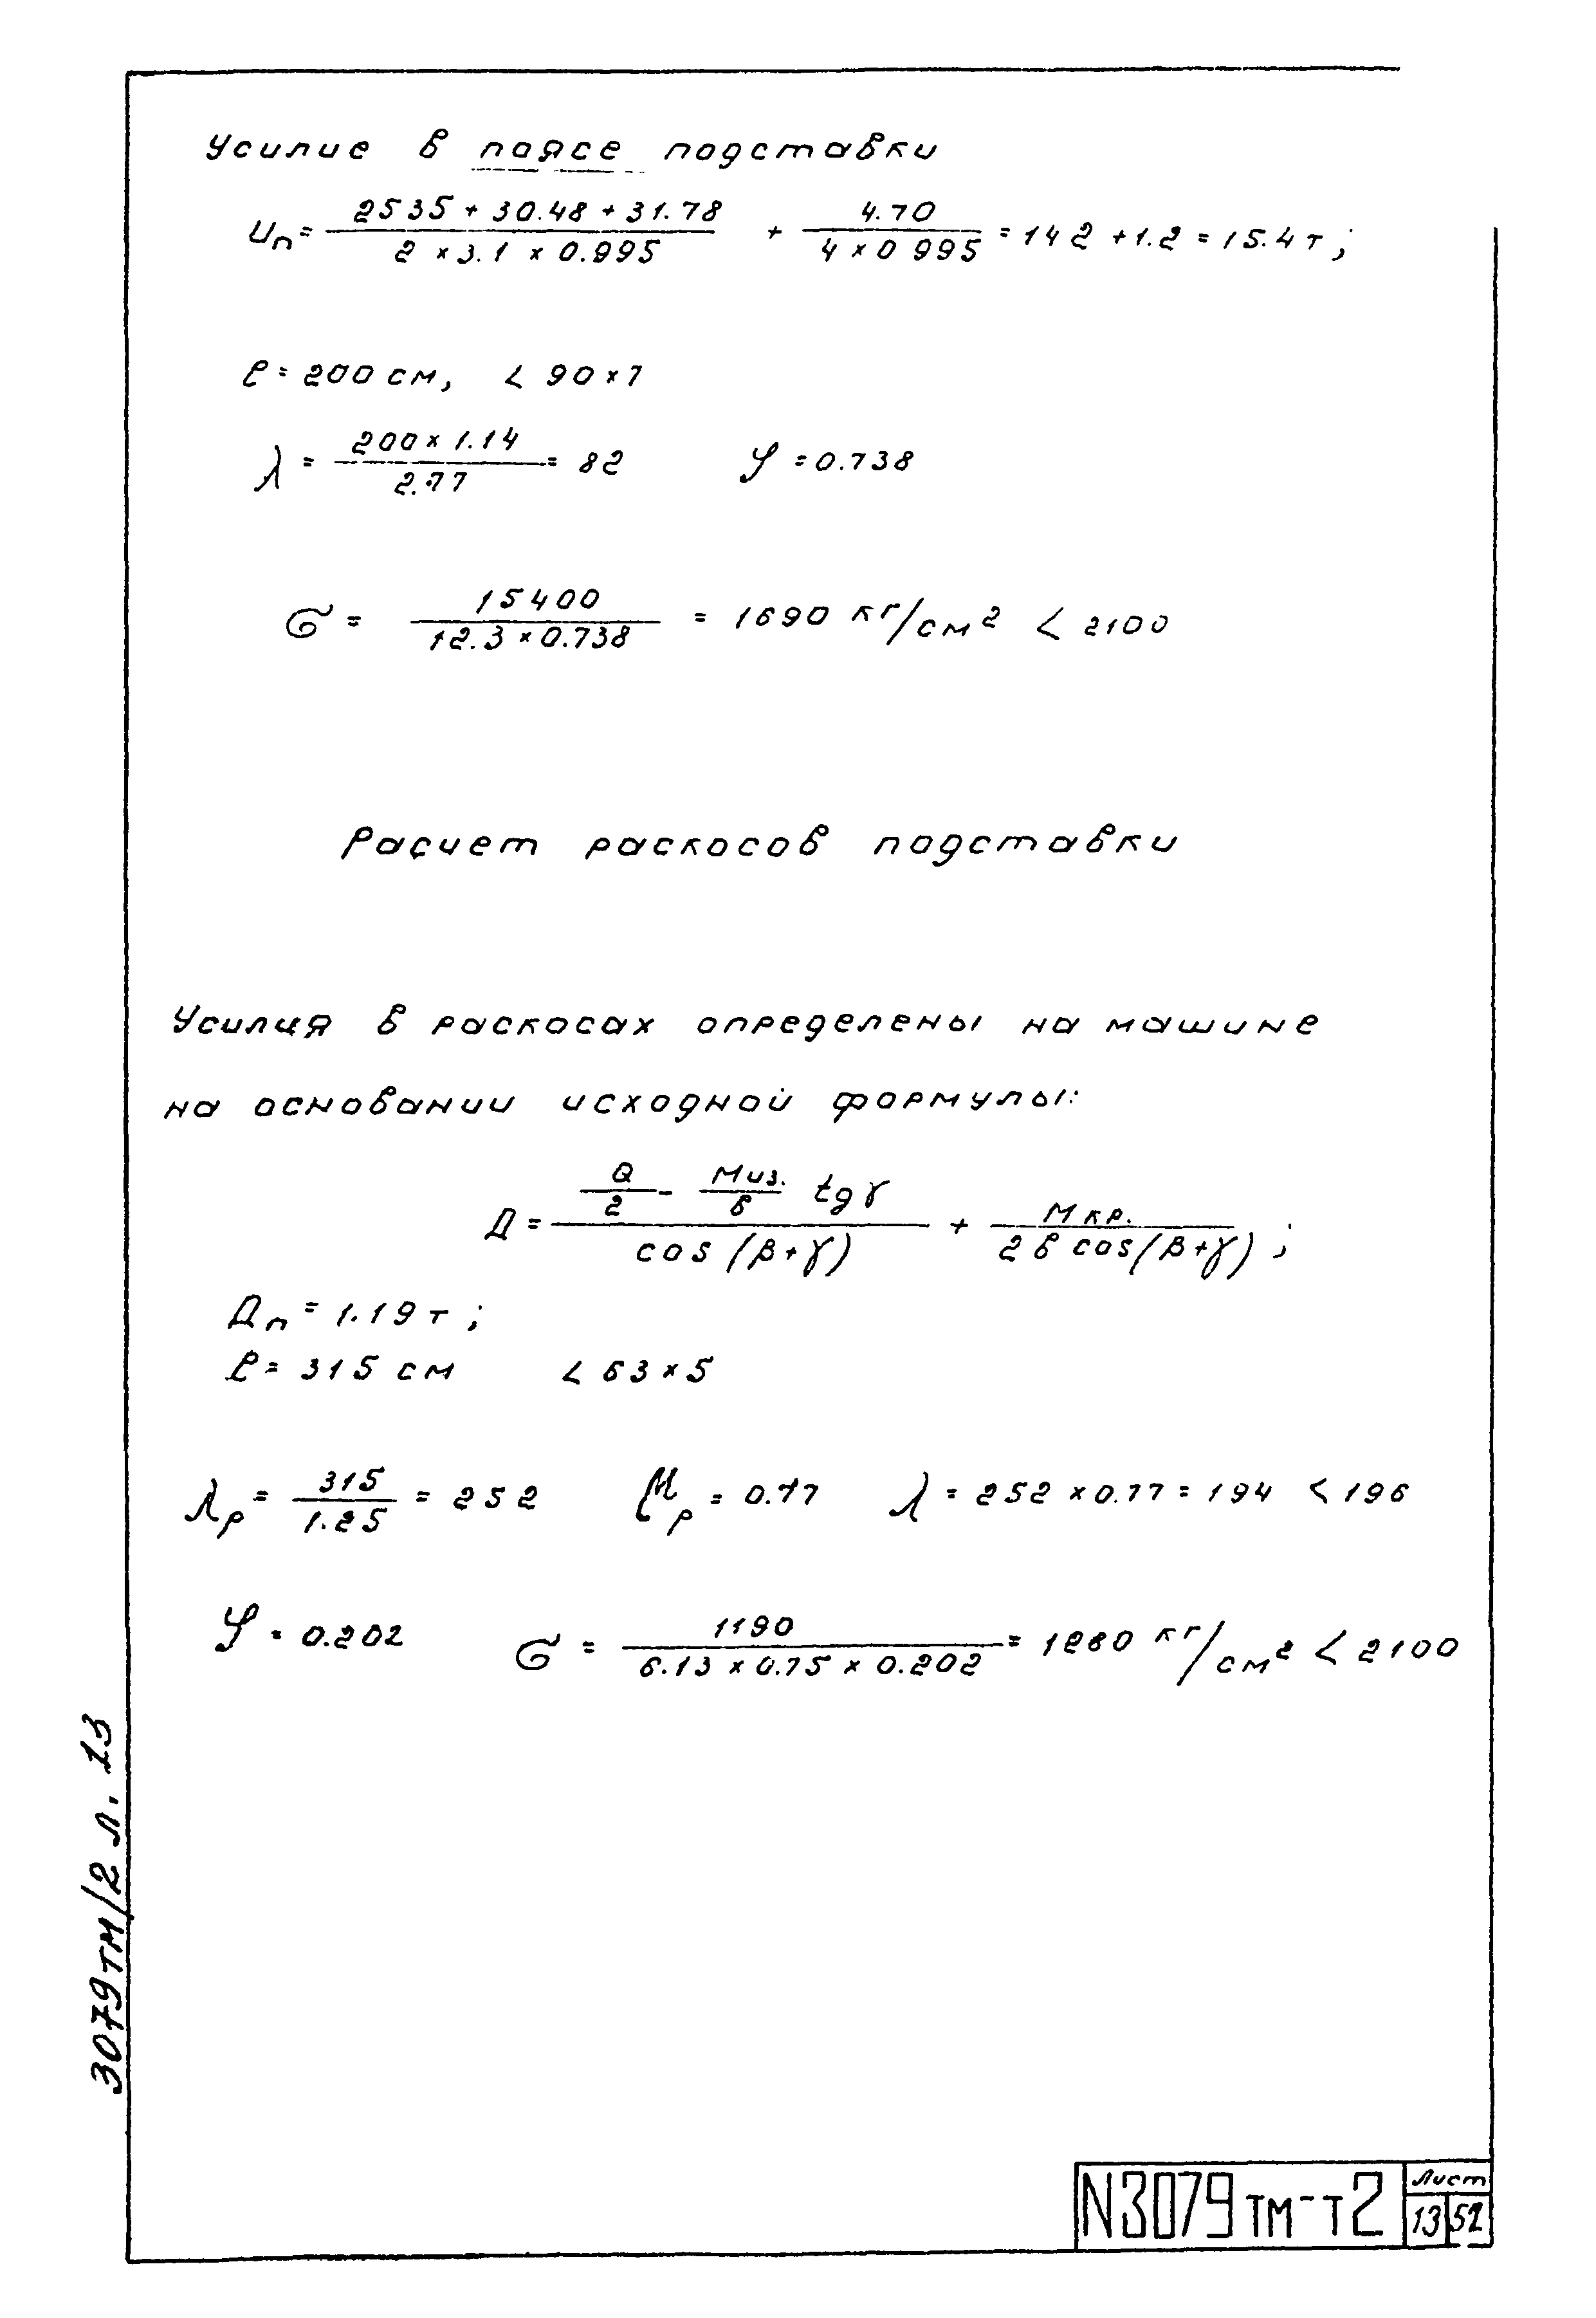 Усилие в поясе подставки
Uп = (2535 + 30.48 + 31.78) / (2 × 3.1 × 0.995) + 4.70 / (4 × 0 995) = 142 + 1.2 = 15.4 т ;
ℓ = 200 см, L 90 × 7
λ = (200 × 1.14) / 2.77 = 82 φ = 0.738
σ = 15400 / (12.3 × 0.738) = 1690 кг/см² < 2100
Расчет раскосов подставки
Усилия в раскосах определены на машине
на основании исходной формулы:
Д = (Q/2 - Mиз./в tg γ) / cos (β + γ) + Mкр. / 2 в cos (β + γ) ;
Дп = 1.19 т ;
ℓ = 315 см L 63 × 5
λр = 315 / 1.25 = 252 μр = 0.77 λ = 252 × 0.77 = 194 < 196
φ = 0.202 σ = 1190 / (6.13 × 0.75 × 0.202) = 1280 кг/см² < 2100
3079тм/2 л. 13
N3079тм-т2
Лист
13 52